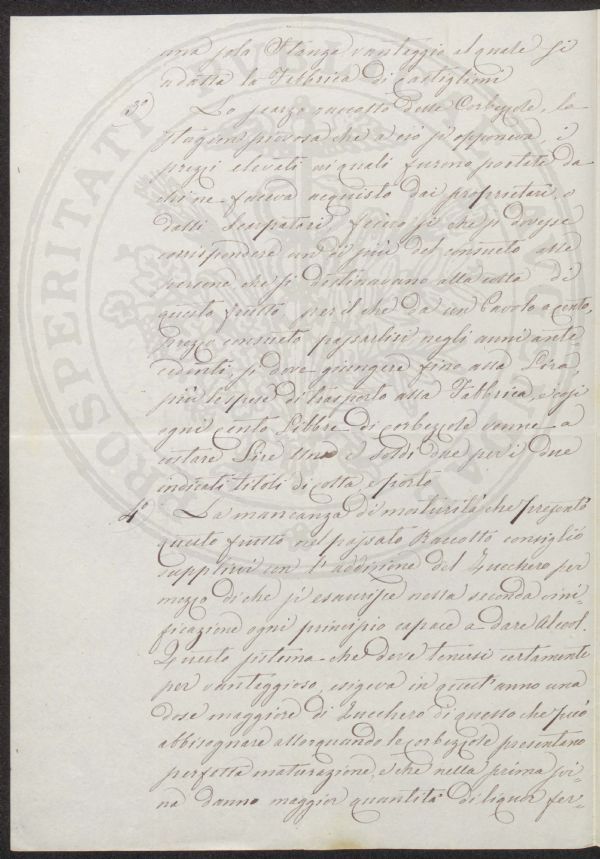 una sola Stanza vantaggio al quale si
adatta la Fabbrica di Castiglioni
3º Lo scarzo raccolto delle Corbezzole, la
Stagion piovosa che a ciò si opponeva i
prezzi elevati ai quali furono portate da
chi ne faceva acquisto dai proprietari, o
dalli Scarpatori fecero sì che si dovesse
corrispondere un di più del consueto alle
persone che si destinavano alla colta di
questo frutto, per il che da un Pavolo a cento,
prezzo consueto passarlisi negli anni ante
cedenti, si dove giungere fino alla Lira,
più le spese di trasporto alla Fabbrica, e così
ogni cento Libbre di corbezzole venne a
costare Lire Una e Soldi due per i due
indicati titoli di colta e porto
4º La mancanza di maturità che presentò
questo frutto nel passato Raccolto consigliò
supplirvi con l'addizione del Zucchero per
mezzo di che si esaurisse nella seconda vini=
ficazione ogni principio capace a dare Alcool.
Questo sistema che deve tenersi certamente
per vantaggioso, esigeva in quest'anno una
dose maggiore di Zucchero di quello che può
abbisognare allorquando le corbezzole presentano
perfetta maturazione, e che nella prima vi=
nà danno maggior quantità di liquor fer=
PROSPERITATI PUBLICAE AUGENDAE